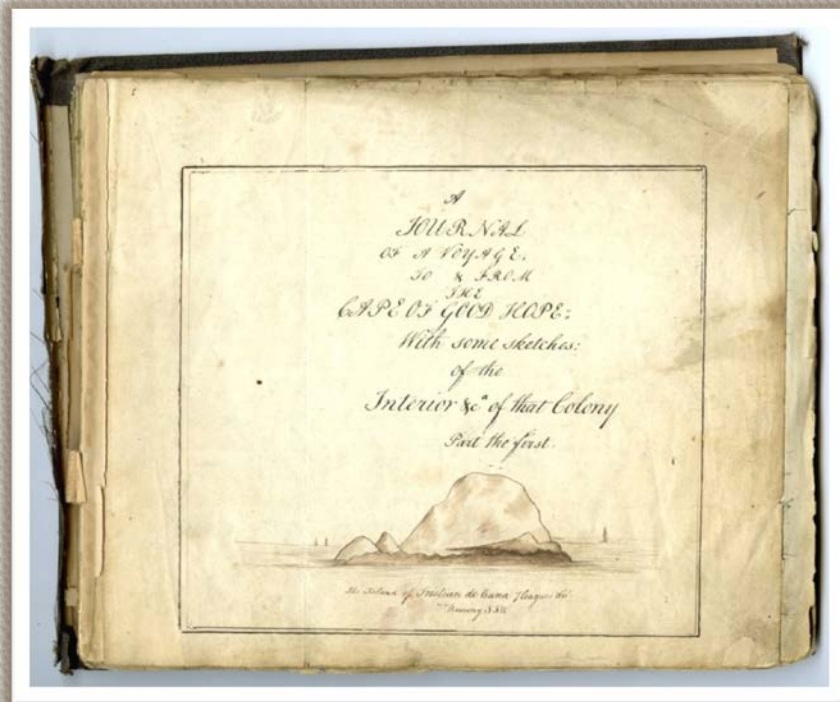 A
JOURNAL
OF A VOYAGE,
TO & FROM
THE
CAPE OF GOOD HOPE:
With some sketches:
of the
Interior &cª of that Colony
Part the first.
The Island of Tristian de Cuna 7 leagues
Bearing